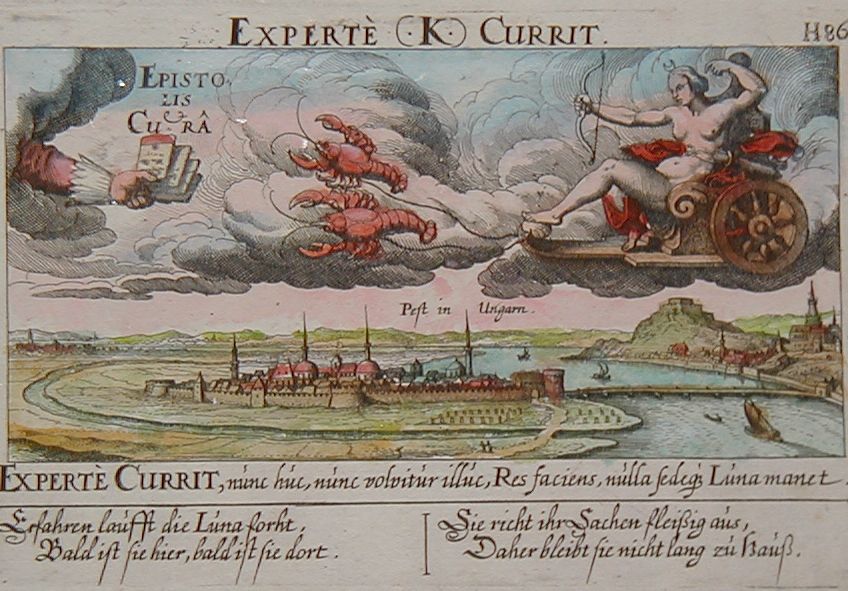 EXPERTÈ (·K·) CURRIT.
H86
EPISTO
LIS
CURÂ
Pest in Ungarn.
EXPERTÈ CURRIT, nunc huc, nunc volvitur illuc, Res faciens, nulla sedeq; Luna manet.
Erfahren laufft die Luna forht,
Bald ist sie hier, bald ist sie dort.
Sie richt ihr Sachen fleißig aus,
Daher bleibt sie nicht lang zu Hauß.